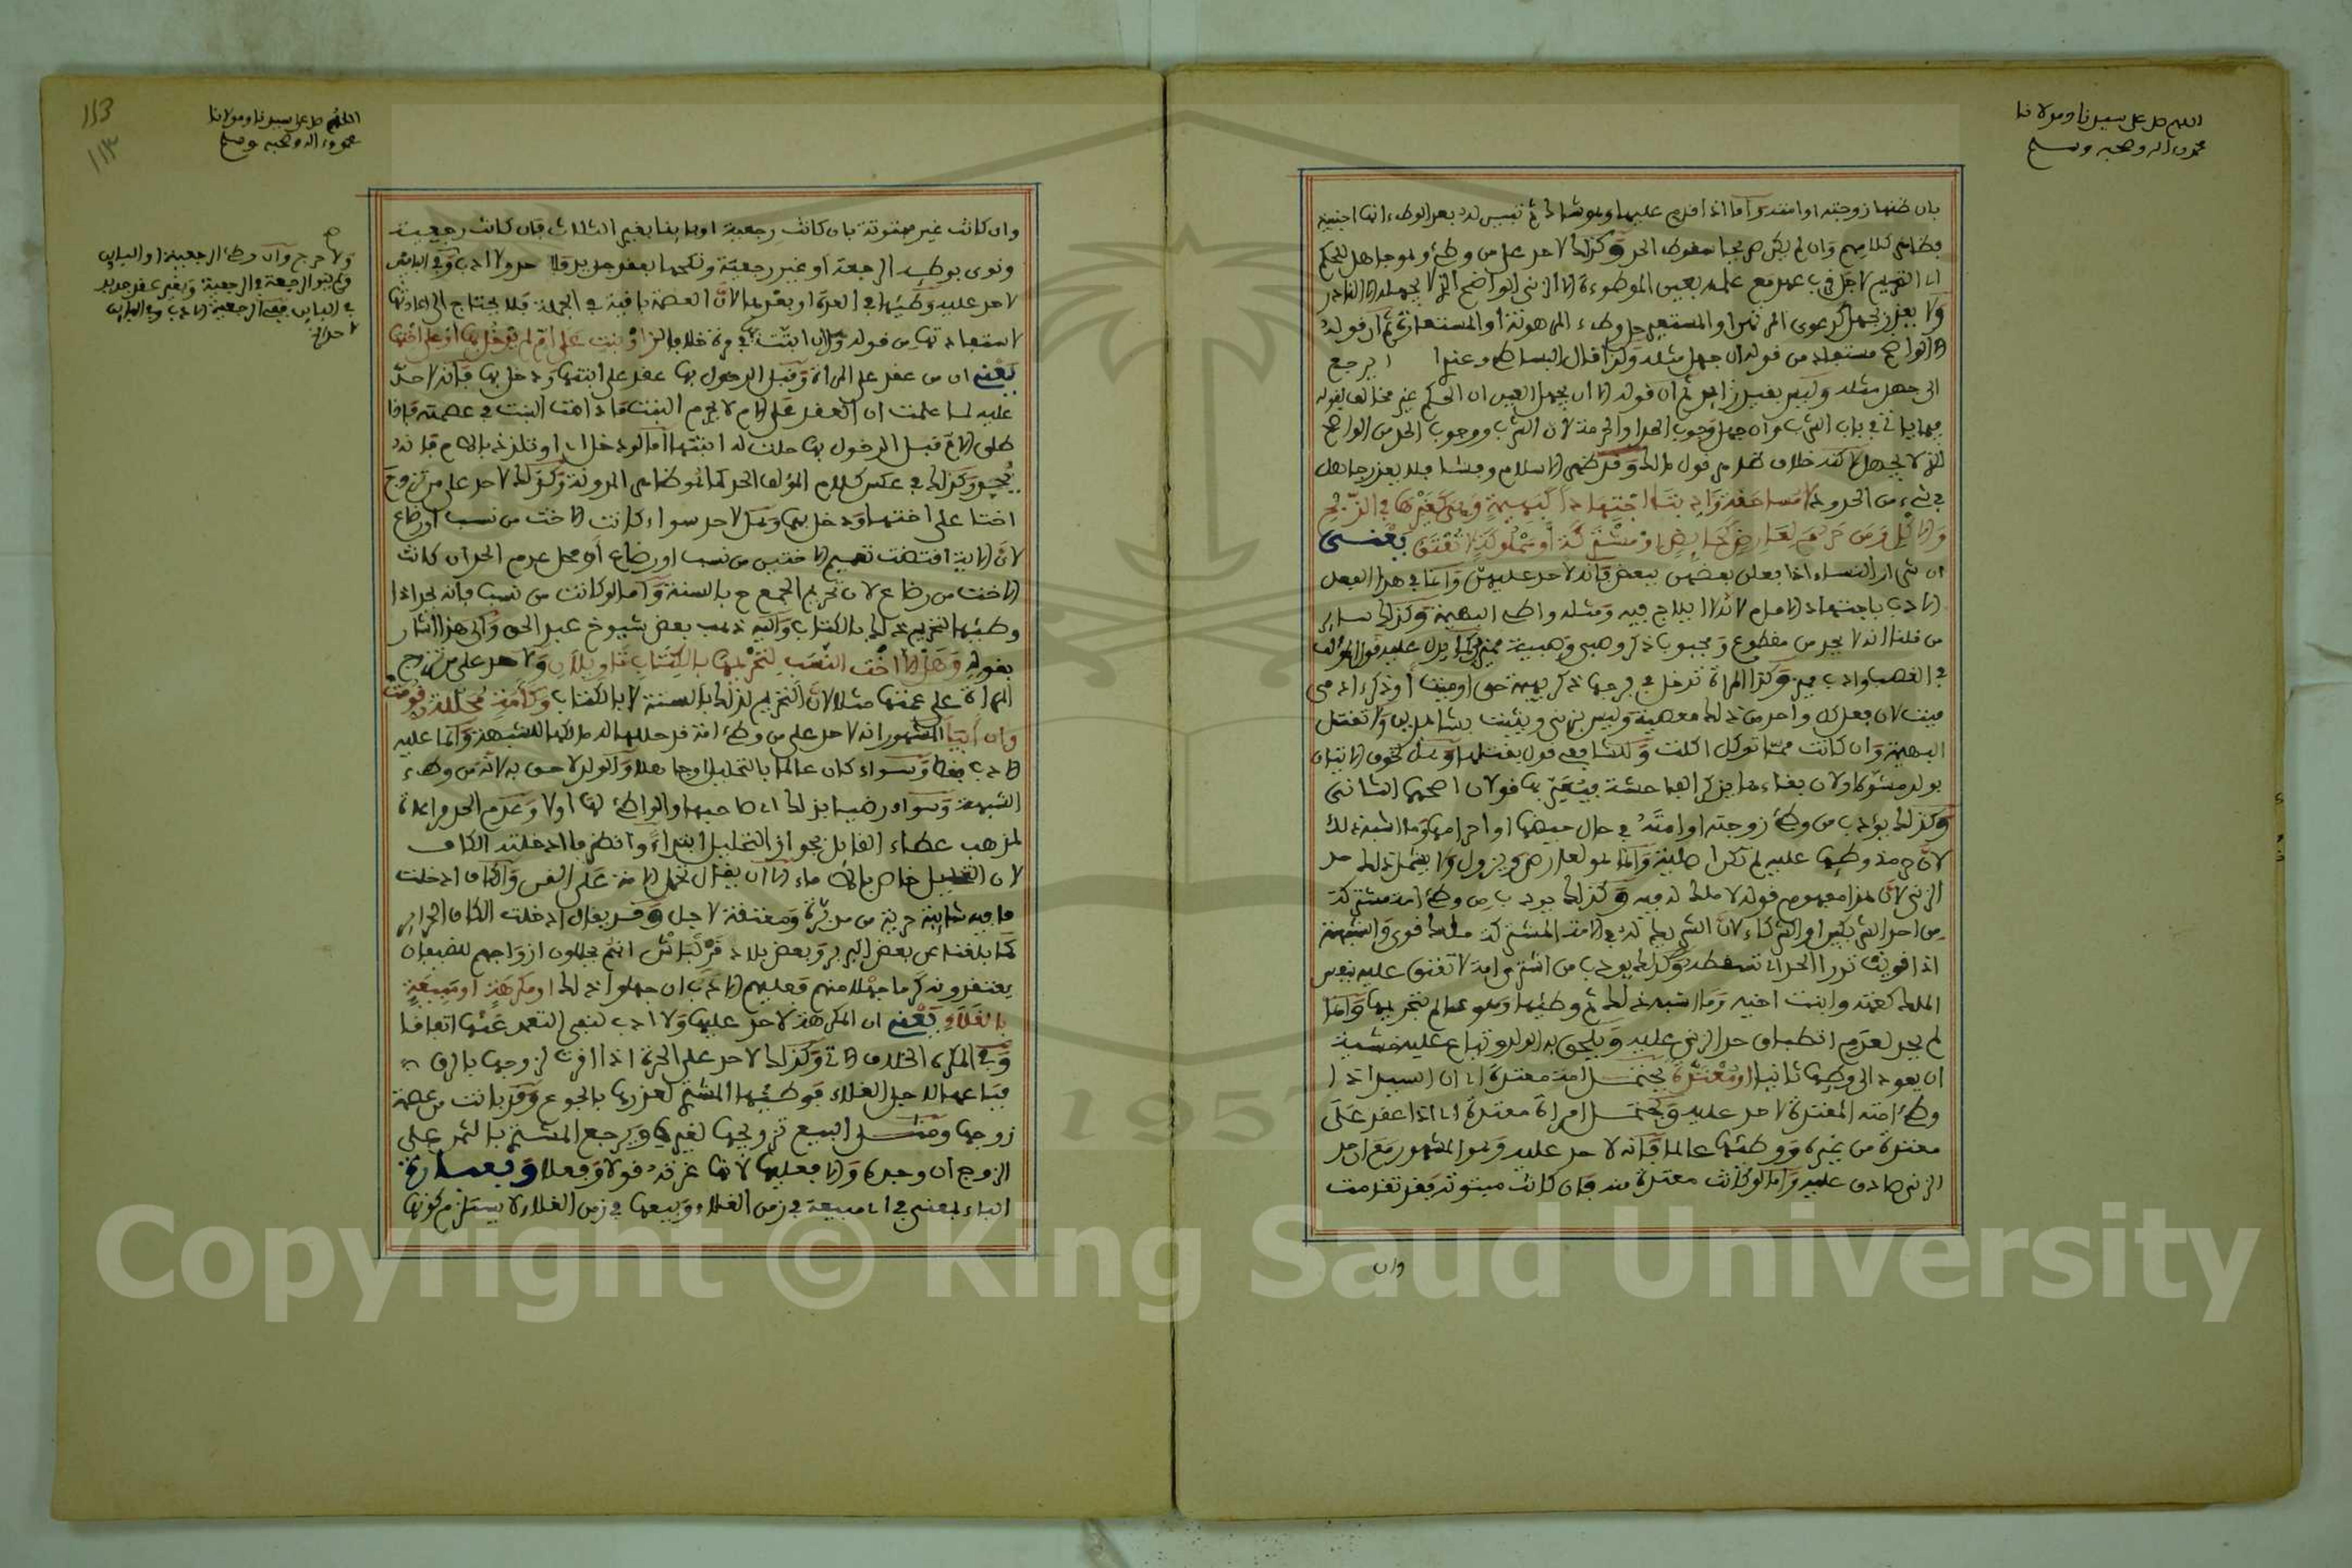 اللهم صل على سيدنا ومولانا
محمد وءاله وصحبه وسلم
بان ظنها زوجته او امته واما اذا قدم عليها وهو شاك ثم تبين له بعد الوطء انها اجنبية
فظاهر كلامهم وان لم يكن صريحا سقوط الحد وكذلك لا حد على من وطئ وهو جاهل للحكم
اي التحريم لاجل قرب عهد مع علمه بعين الموطوءة الا الزنى الواضح الذي لا يجهله الا النادر
ولا يعذر بجهل كدعوى المرتهن او المستعير حل وطء المرهونة او المستعارة ثم ان قوله
الا الواضح مستفاد من قوله ان جهل مثله ولذا قال البساطي وعند ا يرجع
الى جهل مثله وليس بقيد زايد ثم ان قوله الا ان يجهل العين او الحكم غير مخالف لقوله
فيما ياتي في باب الشرب وان جهل وجوب الحد او الحرمة لان الشرب ووجوب الحد من الواضح
الذي لا يجهل لاكنه خلاف ظاهر قول مالك وقد ظهر الاسلام وفشا فلا يعذر جاهل
في شيء من الحدود لا مساحقة وادب اجتهادا كبهيمة وهي كغيرها في الذبح
والاكل ومن حرم لعارض كحايض او مشتركة او مملوكة لا تعتق يعنى
ان شرار النساء اذا فعلن بعضهن ببعض فانه لا حد عليهن وانما في هذا الفعل
الادب باجتهاد الامام لانه لا ايلاج فيه ومثله واطئ البهيمة وكذلك ساير
من قلنا انه لا يحد من مقطوع ومجبوب ذكر وصبي وصبية مميز كما يدل عليه قول المؤلف
في القصب وادب مميز وكذا المراة تدخل في فرجها ذكر بهيمة حي او ميت او ذكر ادمي
ميت لان فعل كل واحد من ذلك معصية وليس بزنى ويثبت بشاهدين ولا تقتل
البهيمة وان كانت مما توكل اكلت وللشافعي قول بقتلها وهل لخوف الاتيان
بولد مشوه او لان بقاءها يذكر الفاحشة فيعير بها قولان اصحهما الثاني
وكذلك يؤدب من وطئ زوجته او امته في حال حيضها او احرامها وما اشبه ذلك
لان حرمة وطئها عليه لم تكن اصلية وانما هو لعارض ويزول ولا يشمل ذلك حد
الزنى لان هذا مفهوم قوله لا ملك له فيه وكذلك يودب من وطئ امة مشتركة
من احد الشريكين او الشركاء لان الشريك له في الامة المشتركة ملك قوي والشبهة
اذا قويت تدرا الحد اي تسقطه وكذلك يودب من اشترى امة لا تعتق عليه بنفس
الملك كعمته وابنت اخيه وما اشبه ذلك ثم وطئها وهو عالم بتحريمها وانما
لم يحد لعدم انطباق حد الزنى عليه ويلحق به الولد وتباع عليه خشية
ان يعود الى وطئها ثانيا او معتدة يحتمل امة معتدة اي ان السيد اذا
وطئ امته المعتدة لا حد عليه ويحتمل امراة معتدة اي اذا عقد على
معتدة من غيره ووطئها عالما فانه لا حد عليه وهو المشهور مع ان حد
الزنى صادق عليه واما لو كانت معتدة منه فان كانت مبتوتة فقد تقدمت
وان
113
١١٣
اللهم صل على سيدنا ومولانا
محمد وءاله وصحبه وسلم
وان كانت غير مبتوتة بان كانت رجعية او باينا بغير الثلاث فان كانت رجعية
ونوى بوطئه الرجعة او غير رجعية ونكحها بعقد جديد فلا حد ولا ادب وفي الباين
لا حد عليه وطئها في العدة او بعدها لان العصمة باقية في الجملة فلا يحتاج الى اعادتها
لاستفادتها من قوله وان ابتت في مرة خلافا لذا او بنت على ام لم يدخل بها او على اختها
يعني ان من عقد على امراة وقبل الدخول بها عقد على ابنتها ودخل بها فانه لا حد
عليه لما علمت ان العقد على الام لا يحرم البنت فما دامت البنت في عصمته فاذا
طلق الام قبل الدخول بها حلت له ابنتها اما لو دخل او تلذذ بالام فانه
يحد وكذلك في عكس كلام المؤلف الحد كما هو ظاهر المدونة وكذلك لا حد على من تزوج
اختا على اختها ودخل بها وهل لا حد سواء كانت الاخت من نسب او رضاع
لان الاية اقتضت تعميم الاختين من نسب او رضاع او محل عدم الحد ان كانت
الاخت من رضاع لان تحريم الجمع ح بالسنة واما لو كانت من نسب فانه يحد اذا
وطئها لتحريم ذلك بالكتاب واليه ذهب بعض شيوخ عبد الحق والى هذا اشار
بقوله وهل الا اخت النسب لتحريمها بالكتاب تاويلان ولا حد على من تزوج
المراة على عمتها مثلا لان التحريم لذلك بالسنة لا بالكتاب وكامة محللة وقومت
وان ابيا المشهور انه لا حد على من وطئ امة قد حللها له مالكها للشبهة وانما عليه
الادب فقط وسواء كان عالما بالتحليل او جاهلا والولد لاحق به لانه من وطء
الشبهة وسواء رضيا بذلك اي صاحبها والواطئ لها او لا وعدم الحد مراعاة
لمذهب عطاء القايل بجواز التحليل ابتداء وانظر ما ادخلته الكاف
لان التحليل خاص بالاماء الا ان يقال تحمل الامة على القن والكاف ادخلت
ما فيه شايبة حرية من مدبرة ومعتقة لاجل وقد يقال ادخلت الكاف الحراير
كما بلغنا عن بعض البربر وبعض بلاد انهم يحلون ازواجهم للضيفان
يعتقدونه كرما جهلا منهم فعليهم الادب ان جهلوا ذلك او مكرهة او مبيعة
بالغلاء يعني ان المكرهة لا حد عليها ولا ادب لنفي التعمد عنها اتفاقا
وفي المكره الخلاف الاتي وكذلك لا حد على الحرة اذا اقرت لزوجها بالرق
فباعها لاجل الغلاء فوطئها المشتري لعذرها بالجوع وقد بانت من عصمة
زوجها ومثل البيع تزويجها لغيره ويرجع المشتري بالثمن على
الزوج ان وجده والا فعليها لانها غرته قولا وفعلا وبعبارة
الباء بمعنى في اي مبيعة في زمن الغلاء وبيعها في زمن الغلاء لا يستلزم كونها
ولا حرج وان وطئ الرجعية او الباين
ولم ينو الرجعة في الرجعية وبغير عقد جديد
في الباين ففي الرجعية الادب وفي الباين
لا حد
Copyright © King Saud University
1957